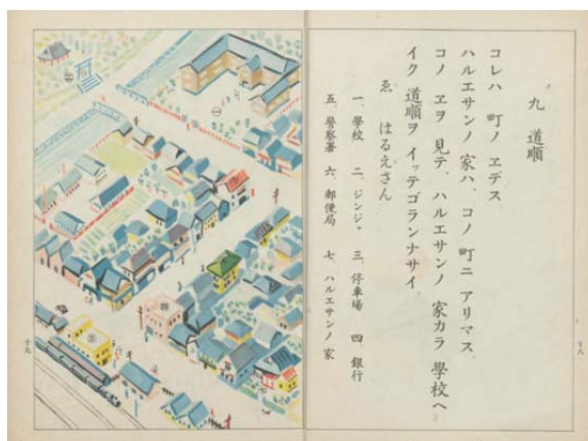 九 道順
コレハ 町ノ ヱデス
ハルエサンノ 家ハ、コノ 町ニ アリマス
コノ ヱヲ 見テ、ハルエサンノ 家カラ 學校ヘ
イク 道順ヲ イッテゴランナサイ
ゑ はるえさん
一、學校 二、ジンジャ 三、停車場 四 銀行
五、警察署 六、郵便局 七、ハルエサンノ 家
十八
十九